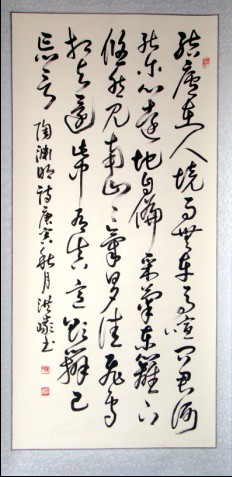 結廬在人境而無車馬喧問君何
能尔心遠地自偏采菊東籬下
悠然見南山々氣日夕佳飛鳥
相與還此中有真意欲辯已
忘言 陶淵明詩庚寅秋月洪书